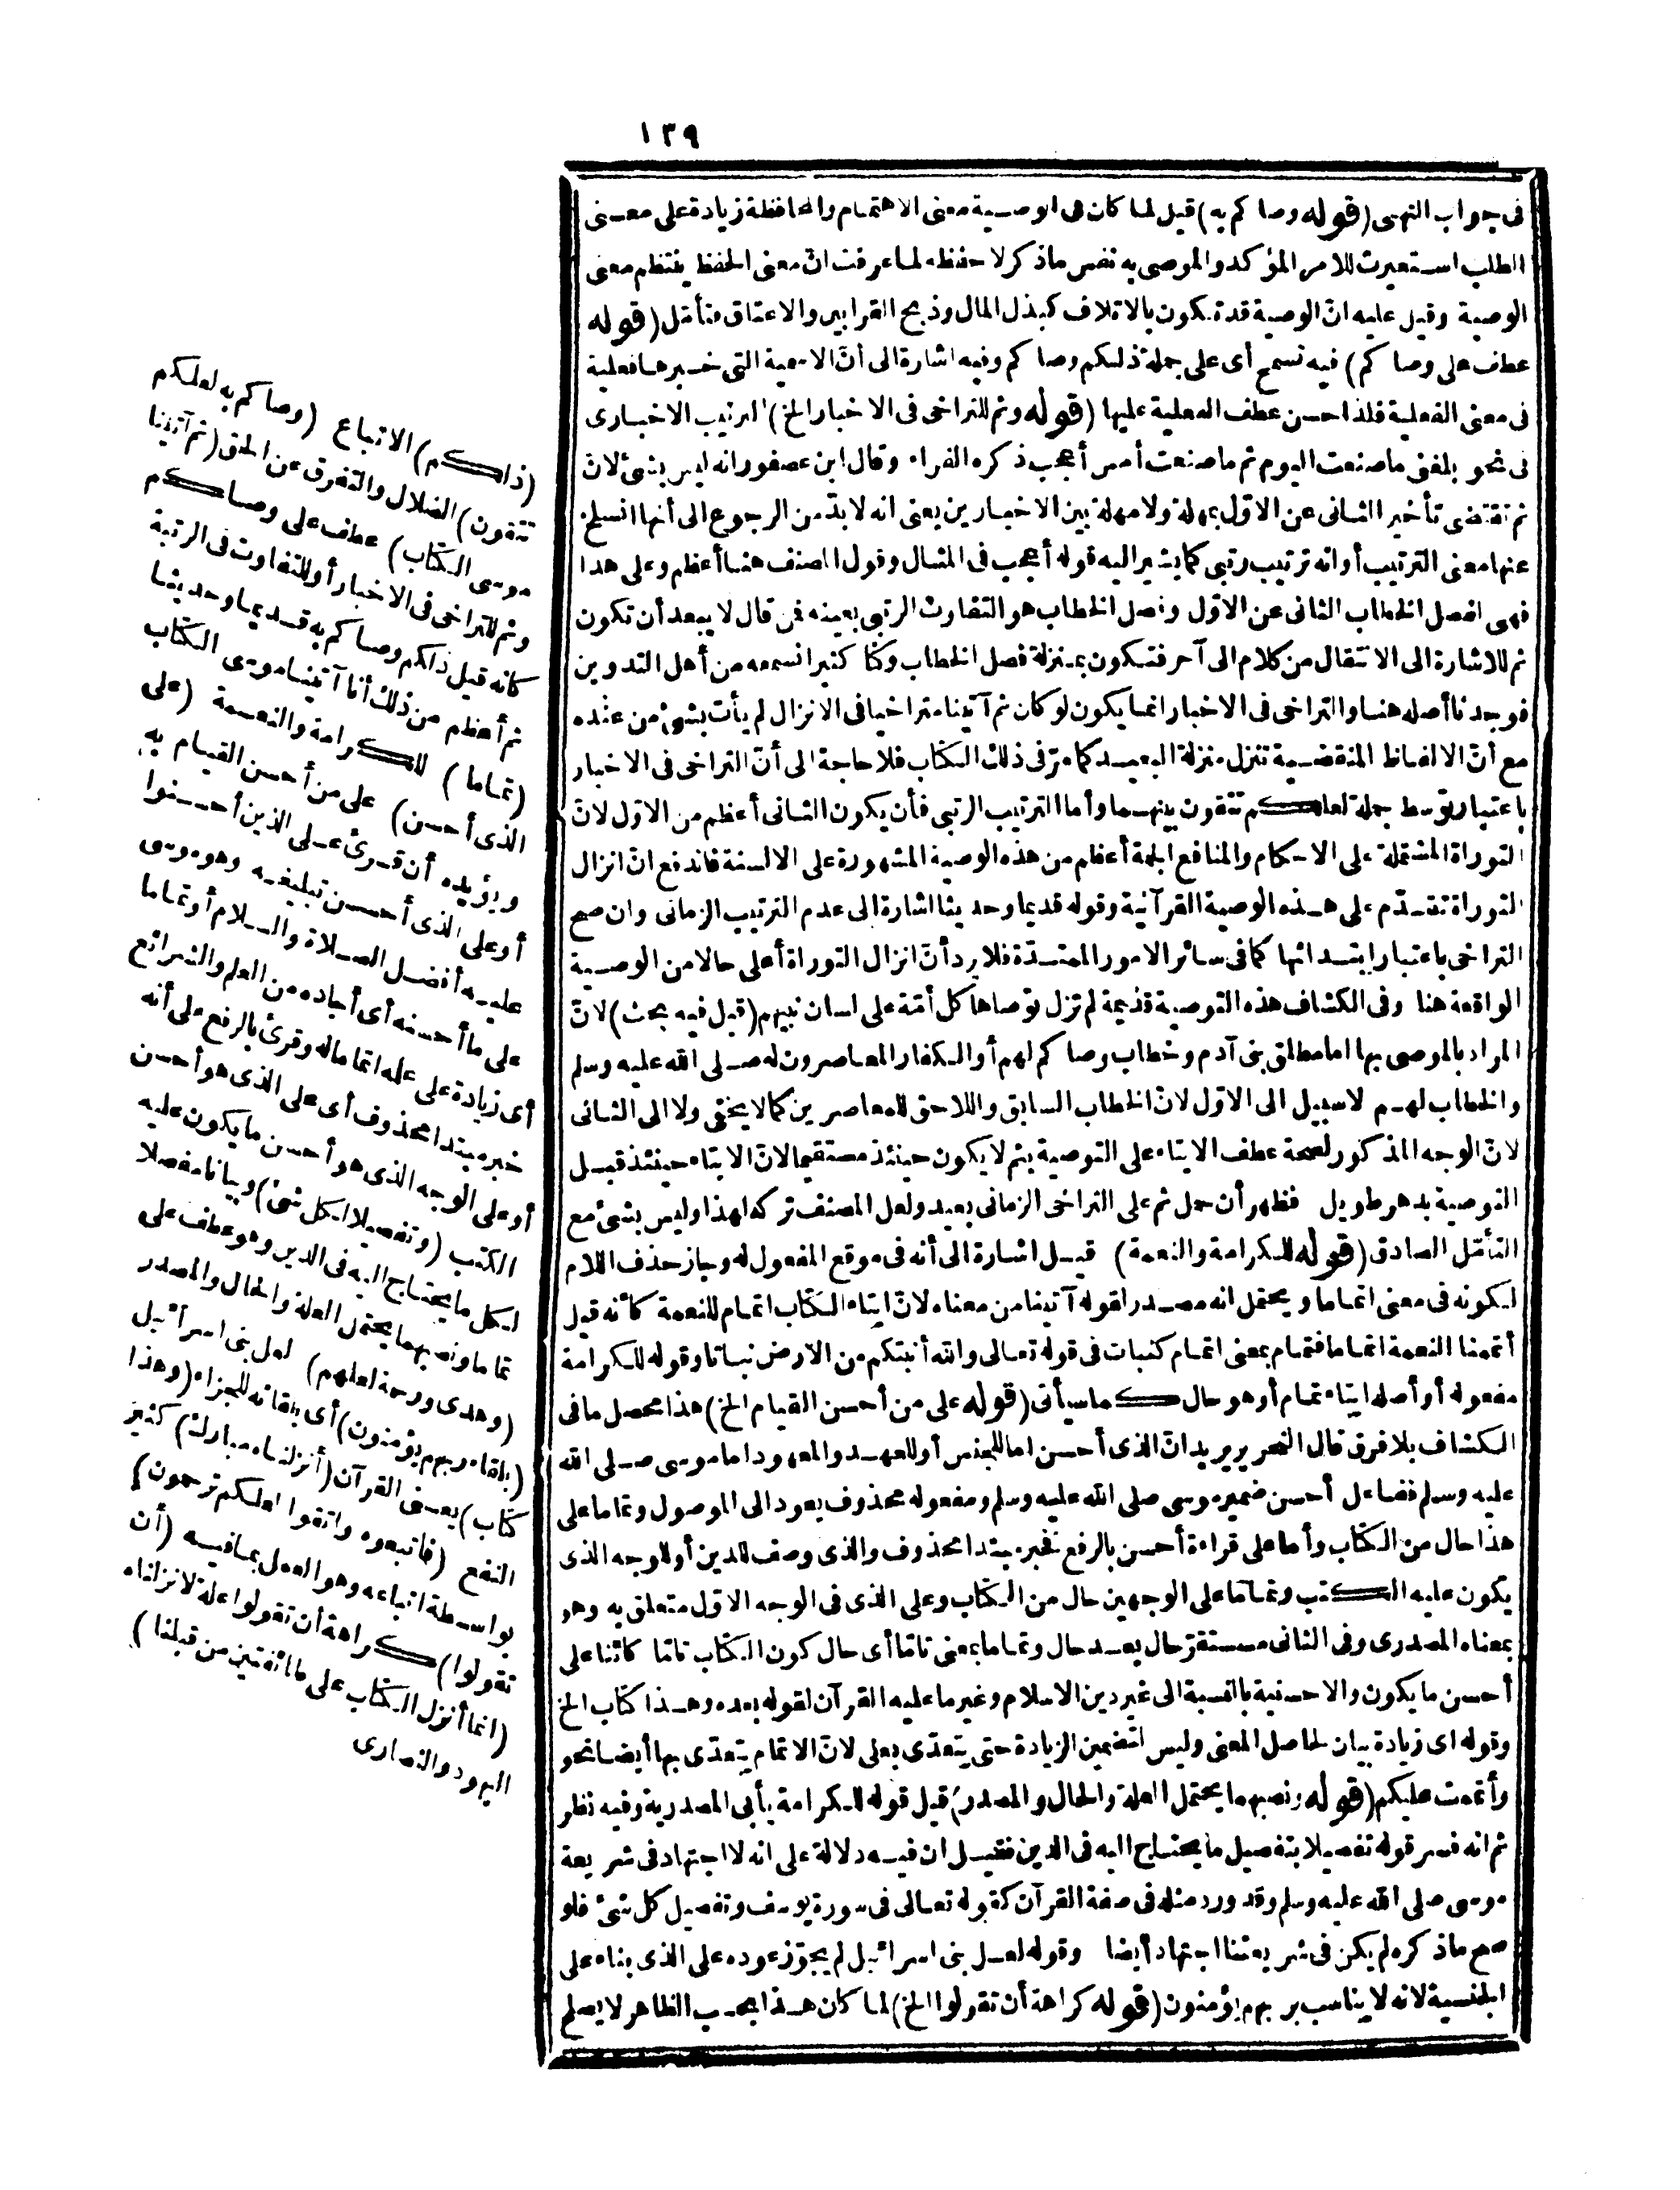 ١٣٩
فى جواب النهى (قوله وصاكم به) قيل لما كان فى الوصية معنى الاهتمام والمحافظة زيادة على معنى
الطلب استعيرت للامر المؤكد والموصى به نفس ماذكر لا حفظه لما عرفت انّ معنى الحفظ ينتظم معنى
الوصية وقيل عليه انّ الوصية قد تكون بالاتلاف كبذل المال وذبح القرابين والاعتاق فتأمّل (قوله
عطف على وصاكم) فيه تسمح أى على جملة ذلكم وصاكم وفيه اشارة الى أنّ الاسمية التى خبرها فعلية
فى معنى الفعلية فلذا حسن عطف الفعلية عليها (قوله وثم للتراخى فى الاخبار الخ) الترتيب الاخبارى
فى نحو بلغنى ماصنعت اليوم ثم ماصنعت أمس أعجب ذكره الفراء وقال ابن عصفور انه ليس بشئ لانّ
ثم تقتضى تأخير الثانى عن الاوّل بمهلة ولا مهلة بين الاخبارين يعنى انه لا بدّ من الرجوع الى أنها انسلخ
عنها معنى الترتيب أو انه ترتيب رتبى كما يشير اليه قوله أعجب فى المثال وقول المصنف هنا أعظم وعلى هذا
فهى لفصل الخطاب الثانى عن الاوّل وفصل الخطاب هو التفاوت الرتبى بعينه فمن قال لا يبعد أن تكون
ثم للاشارة الى الانتقال من كلام الى آخر فتكون بمنزلة فصل الخطاب وكنا كثيرا نسمعه من أهل التدوين
فوجدنا أصله هنا والتراخى فى الاخبار انما يكون لو كان ثم آتينا متراخيا فى الانزال لم يأت بشئ من عنده
مع أنّ الالفاظ المنقضية تنزل منزلة البعيد كما مرّ فى ذلك الكتاب فلا حاجة الى أنّ التراخى فى الاخبار
باعتبار توسط جملة لعلكم تتقون بينهما وأما الترتيب الرتبى فأن يكون الثانى أعظم من الاوّل لانّ
التوراة المشتملة على الاحكام والمنافع الجمة أعظم من هذه الوصية المشهورة على الالسنة فاندفع انّ انزال
التوراة تقدّم على هذه الوصية القرآنية وقوله قديما وحديثا اشارة الى عدم الترتيب الزمانى وان صح
التراخى باعتبار ابتدائها كما فى سائر الامور الممتدّة فلا يرد أنّ انزال التوراة أعلى حالا من الوصية
الواقعة هنا وفى الكشاف هذه التوصية قديمة لم تزل توصاها كل أمّة على لسان نبيهم (قيل فيه بحث) لانّ
المراد بالموصى بها اما مطلق بنى آدم وخطاب وصاكم لهم أو الكفار المعاصرون له صلى الله عليه وسلم
والخطاب لهم لا سبيل الى الاوّل لانّ الخطاب السابق واللاحق للمعاصرين كما لا يخفى ولا الى الثانى
لانّ الوجه المذكور لصحة عطف الايتاء على التوصية بثم لا يكون حينئذ مستقيما لانّ الايتاء حينئذ قبل
التوصية بدهر طويل فظهر أن حمل ثم على التراخى الزمانى بعيد ولعل المصنف تركه لهذا وليس بشئ مع
التأمّل الصادق (قوله للكرامة والنعمة) قيل اشارة الى أنه فى موقع المفعول له وجاز حذف اللام
لكونه فى معنى اتماما ويحتمل انه مصدر لقوله آتينا من معناه لانّ ايتاء الكتاب اتمام للنعمة كأنه قيل
أتممنا النعمة اتماما فتمام بمعنى اتمام كنبات فى قوله تعالى والله أنبتكم من الارض نباتا وقوله للكرامة
مفعوله أو أصله ايتاء تمام أو هو حال كما سيأتى (قوله على من أحسن القيام الخ) هذا محصل ما فى
الكشاف بلا فرق قال النحرير يريد انّ الذى أحسن اما للجنس أو للعهد والمعهود اما موسى صلى الله
عليه وسلم ففاعل أحسن ضمير موسى صلى الله عليه وسلم ومفعوله محذوف يعود الى الموصول وتماما على
هذا حال من الكتاب وأما على قراءة أحسن بالرفع فخبر مبتدا محذوف والذى وصف للدين أو للوجه الذى
يكون عليه الكتب وتماما على الوجهين حال من الكتاب وعلى الذى فى الوجه الاوّل متعلق به وهو
بمعناه المصدرى وفى الثانى مستقرّ حال بعد حال وتماما بمعنى تامّا أى حال كون الكتاب تامّا كائنا على
أحسن ما يكون والاحسنية بالنسبة الى غير دين الاسلام وغير ما عليه القرآن لقوله بعده وهذا كتاب الخ
وقوله اى زيادة بيان لحاصل المعنى وليس لتضمين الزيادة حتى يتعدّى بعلى لانّ الاتمام يتعدّى بها أيضا نحو
وأتممت عليكم (قوله ونصبهما يحتمل العلة والحال والمصدر) قيل قوله للكرامة يأبى المصدرية وفيه نظر
ثم انه فسر قوله تفصيلا بتفصيل ما يحتاج اليه فى الدين فقيل ان فيه دلالة على انه لا اجتهاد فى شريعة
موسى صلى الله عليه وسلم وقد ورد مثله فى صفة القرآن كقوله تعالى فى سورة يوسف وتفصيل كل شئ فلو
صح ماذكره لم يكن فى شريعتنا اجتهاد أيضا وقوله لعل بنى اسرائيل لم يجوّز عوده على الذى بناء على
الجنسية لانه لا يناسب بربهم يؤمنون (قوله كراهة أن تقولوا الخ) لما كان هذا بحسب الظاهر لا يصلح
(ذلكم) الاتباع (وصاكم به لعلكم
تتقون) الضلال والتفرق عن الحق (ثم آتينا
موسى الكتاب) عطف على وصاكم
وثم للتراخى فى الاخبار أو للتفاوت فى الرتبة
كانه قيل ذلكم وصاكم به قديما وحديثا
ثم أعظم من ذلك أنا آتينا موسى الكتاب
(تماما) للكرامة والنعمة (على
الذى أحسن) على من أحسن القيام به
ويؤيده أن قرئ على الذين أحسنوا
أو على الذى أحسن تبليغه وهو موسى
عليه أفضل الصلاة والسلام أو تماما
على ما أحسنه أى أجاده من العلم والشرائع
أى زيادة على علمه اتماما له وقرئ بالرفع على أنه
خبر مبتدا محذوف أى على الذى هو أحسن
أو على الوجه الذى هو أحسن ما يكون عليه
الكتب (وتفصيلا لكل شئ) وبيانا مفصلا
لكل ما يحتاج اليه فى الدين وهو عطف على
تماما ونصبهما يحتمل العلة والحال والمصدر
(وهدى ورحمة لعلهم) لعل بنى اسرائيل
(بلقاء ربهم يؤمنون) أى بلقائه للجزاء (وهذا
كتاب) يعنى القرآن (أنزلناه مبارك) كثير
النفع (فاتبعوه واتقوا لعلكم ترحمون)
بواسطة اتباعه وهو العمل بما فيه (أن
تقولوا) كراهة أن تقولوا علة لانزلناه
(انما أنزل الكتاب على طائفتين من قبلنا)
اليهود والنصارى